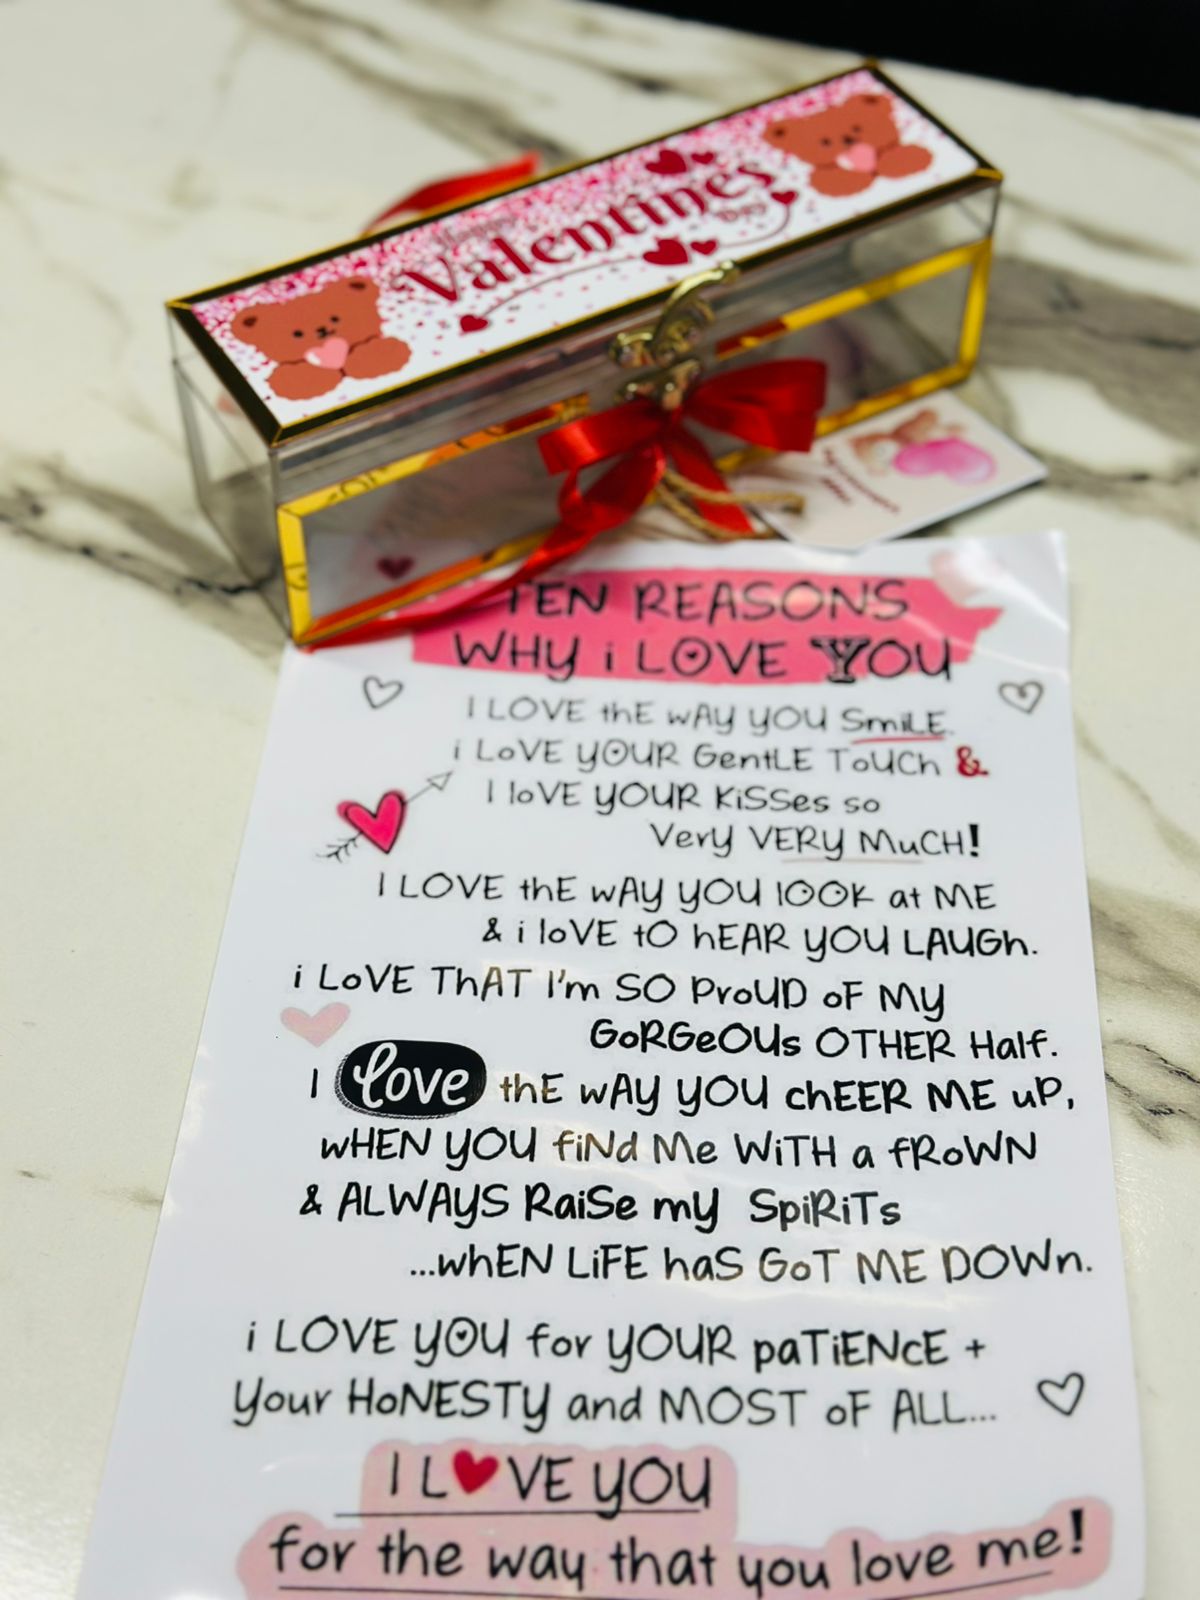 Happy
Valentines
Day
TEN REASONS
WHY i LOVE YOU
I LOVE thE wAY YOU SmiLE.
i LoVE YOUR GentLE ToUCh &
I loVE YOUR KiSSes so
Very VERY MuCH!
I LOVE thE wAY YOU lOOK at ME
& i loVE tO hEAR YOU LAUGh.
i LoVE ThAT I'm SO ProUD oF My
GoRGeOUs OTHER Half.
I love thE wAy YOU chEER ME uP,
wHEN YOU fiNd Me WiTH a fRoWN
& ALWAYS RaiSe my SpiRiTs
...whEN LiFE haS GoT ME DOWn.
i LOVE YOU for YOUR paTiENcE +
Your HoNESTy and MOST oF ALL...
I L❤VE YOU
for the way that you love me!